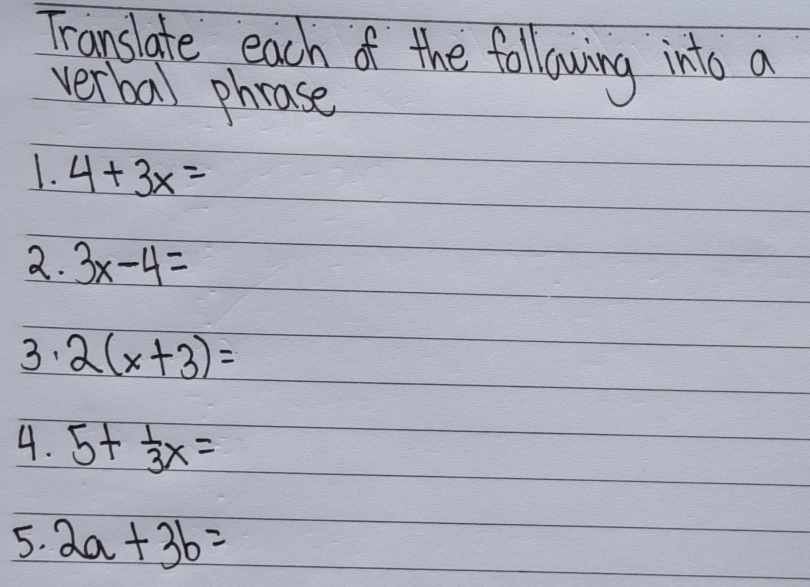 Translate each of the following into a
verbal phrase
1. 4 + 3x =
2. 3x - 4 =
3. 2(x + 3) =
4. 5 + 1/3x =
5. 2a + 3b =